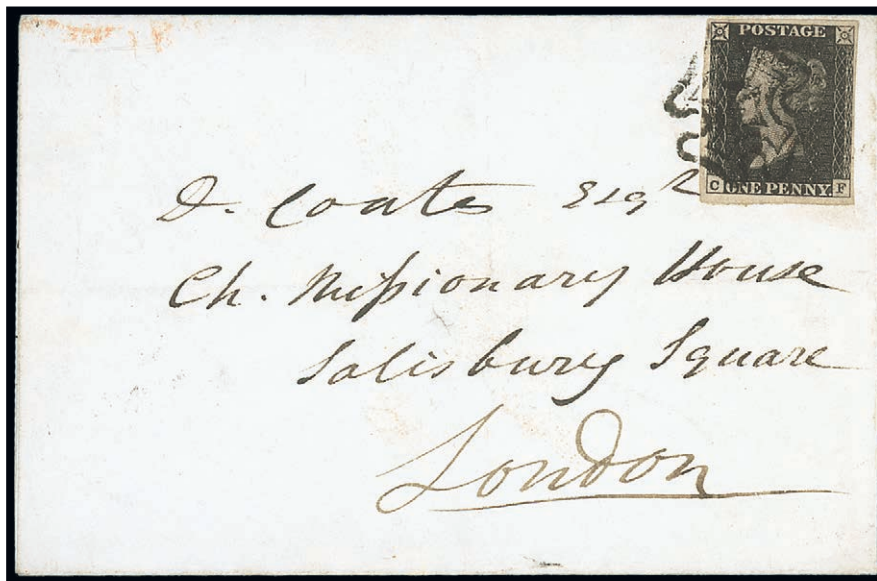 POSTAGE
C ONE PENNY. F
D. Coates Esqr
Ch. Miſsionary House
Salisbury Square
London